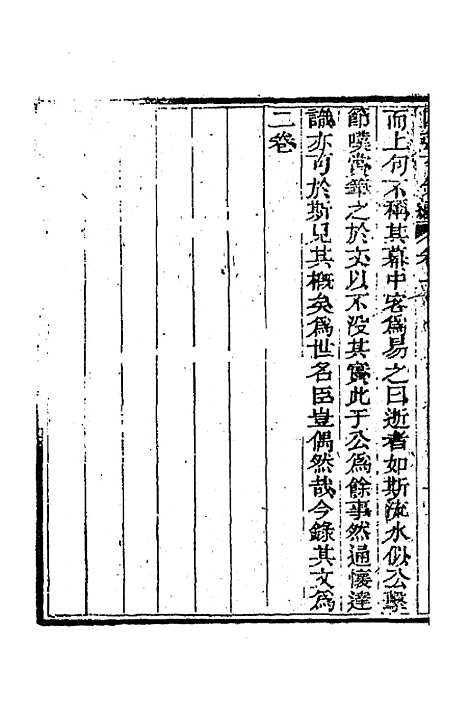 而上句不稱其幕中客為易之曰逝者如斯流水似公擊
節嘆賞筆之於文以不没其實此于公為餘事然通懷達
識亦可於斯見其概矣為世名臣豈偶然哉今錄其文為
二卷